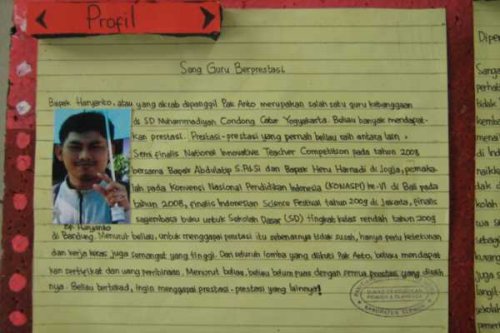 Profil
Sang Guru Berprestasi
Bapak Haryanto, atau yang akrab dipanggil Pak Anto merupakan salah satu guru kebanggaan
di SD Muhammadiyah Condong Catur Yogyakarta. Beliau banyak mendapat-
kan prestasi. Prestasi-prestasi yang pernah beliau raih antara lain.
Semi finalis National Innovative Teacher Competition pada tahun 2009
bersama Bapak Abdullatip S.Pd.Si dan Bapak Heru Harnadi di Jogja, pemaka-
lah pada Konvensi Nasional Pendidikan Indonesia (KONASPI) ke-VI di Bali pada
tahun 2008, finalis Indonesian Science Festival tahun 2009 di Jakarta, finalis
sayembara buku untuk Sekolah Dasar (SD) tingkat kelas rendah tahun 2009
Bp. Haryanto
di Bandung. Menurut beliau, untuk menggapai prestasi itu sebenarnya tidak susah, hanya perlu ketekunan
dan kerja keras juga semangat yang tinggi. Dari seluruh lomba yang diikuti Pak Anto, beliau mendapat
kan sertifikat dan uang pembinaan. Menurut beliau, beliau belum puas dengan semua prestasi yang diraih
nya. Beliau bertekad, ingin menggapai prestasi-prestasi yang lainnya!
Dipe
Sanga